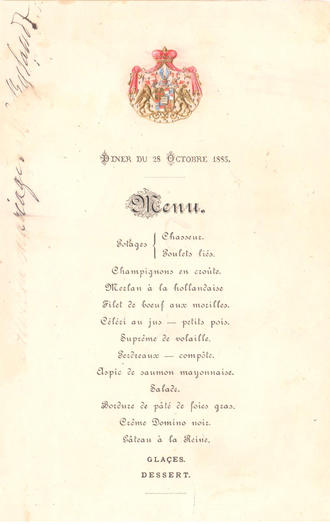 DINER DU 28 OCTOBRE 1885.
Menu.
Potages { Chasseur.
Poulets liés.
Champignons en croûte.
Merlan à la hollandaise
Filet de boeuf aux morilles.
Céléri au jus — petits pois.
Suprême de volaille.
Perdreaux — compôte.
Aspic de saumon mayonnaise.
Salade.
Bordure de pâté de foies gras.
Crême Domino noir.
Gâteau à la Reine.
GLAÇES.
DESSERT.